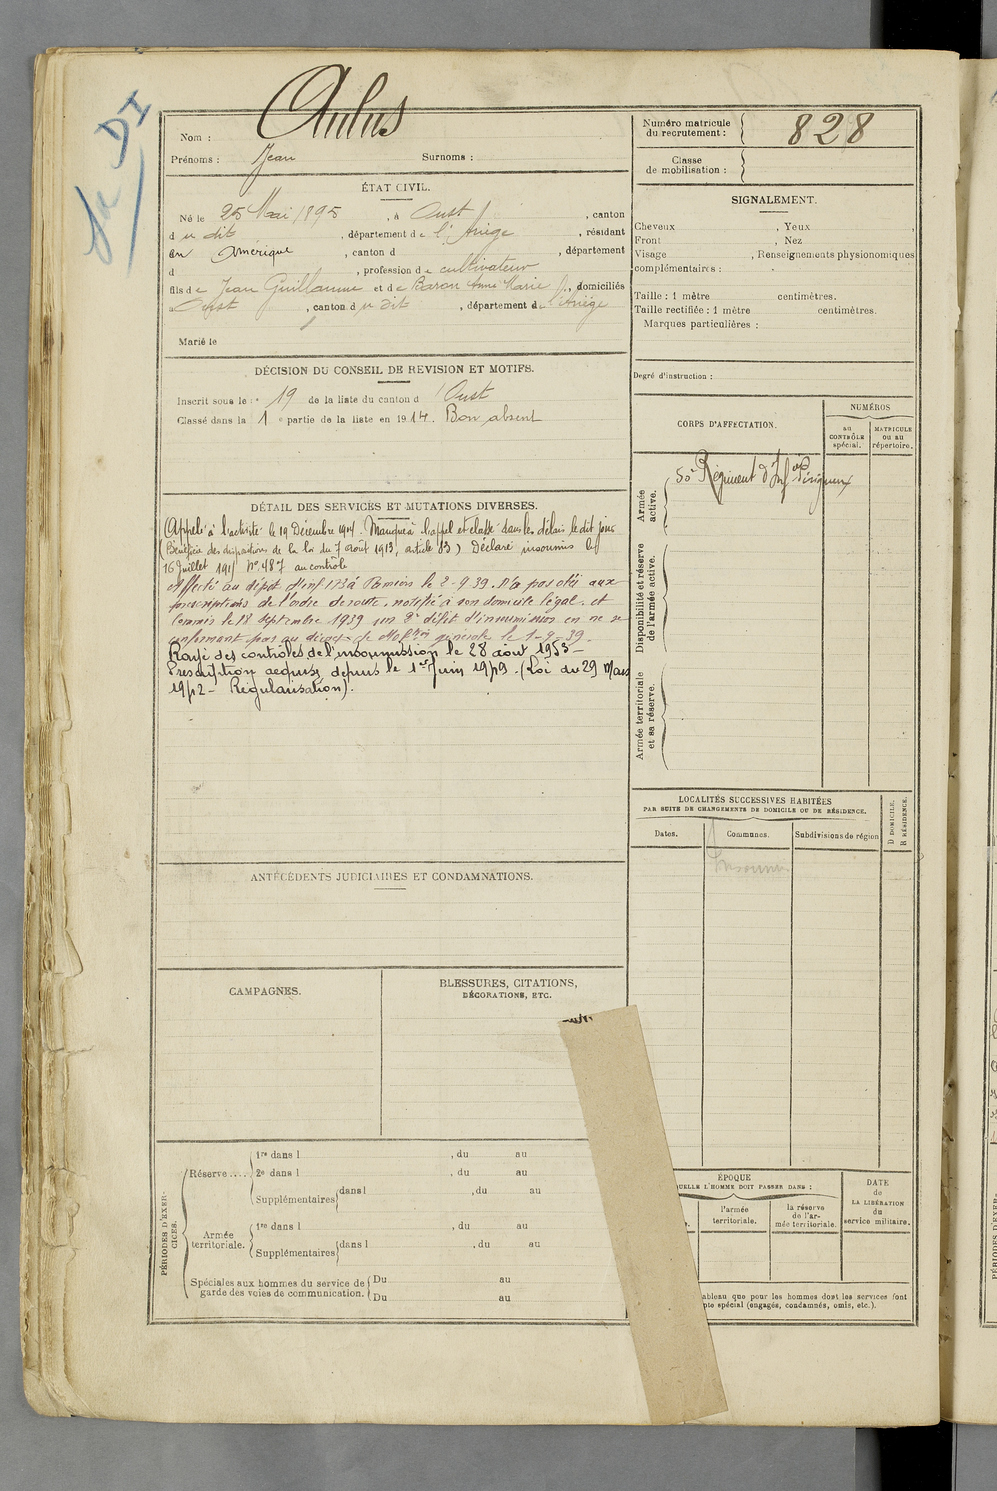 Aulus
Nom :
Prénoms : Jean Surnoms :
Numéro matricule
du recrutement : 828
Classe
de mobilisation :
ÉTAT CIVIL.
Né le 25 Mai 1895, à Oust, canton
du dit, département de l'Ariège, résidant
en Amérique, canton d , département
d , profession de cultivateur
fils de Jean Guillaume et de Baron Anne Marie, domiciliés
à Oust, canton du dit, département de l'Ariège
Marié le
SIGNALEMENT.
Cheveux , Yeux ,
Front , Nez
Visage , Renseignements physionomiques
complémentaires :
Taille : 1 mètre centimètres.
Taille rectifiée : 1 mètre centimètres.
Marques particulières :
Degré d'instruction :
DÉCISION DU CONSEIL DE REVISION ET MOTIFS.
Inscrit sous le n° 19 de la liste du canton d'Oust
Classé dans la 1e partie de la liste en 1914. Bon absent
CORPS D'AFFECTATION.
NUMÉROS
au
CONTRÔLE
spécial.
MATRICULE
OU AU
répertoire.
Armée
active.
50e Régiment d'Inf Périgueux
Disponibilité et réserve
de l'armée active.
Armée territoriale
et sa réserve.
DÉTAIL DES SERVICES ET MUTATIONS DIVERSES.
(Appelé à l'activité le 19 Décembre 1914. Manque à l'appel et classé dans les délais le dit jour
(Bénéficie des dispositions de la loi du 7 août 1913, article 13) Déclaré insoumis le
16 Juillet 1915 N° 487 au contrôle
Affecté au dépôt d'inf 173 à Pamiers le 2-9-39. N'a pas obéi aux
prescriptions de l'ordre de route, notifié à son domicile légal. et
commis le 18 septembre 1939 un 2e délit d'insoumission en ne se
conformant pas au décret de Mobon générale le 1-9-39.
Rayé des contrôles de l'insoumission le 28 août 1953 -
Prescription acquise depuis le 1er Juin 1949. (Loi du 29 Mars
1942 - Régularisation).
LOCALITÉS SUCCESSIVES HABITÉES
PAR SUITE DE CHANGEMENTS DE DOMICILE OU DE RÉSIDENCE.
Dates. Communes. Subdivisions de région
D DOMICILE.
R RÉSIDENCE.
Insoumis
ANTÉCÉDENTS JUDICIAIRES ET CONDAMNATIONS.
CAMPAGNES.
BLESSURES, CITATIONS,
DÉCORATIONS, ETC.
PÉRIODES D'EXER-
CICES.
Réserve ....
1re dans l , du au
2e dans l , du au
Supplémentaires dans l , du au
Armée
territoriale.
1re dans l , du au
Supplémentaires dans l , du au
Spéciales aux hommes du service de
garde des voies de communication.
Du au
Du au
ÉPOQUE
QUELLE L'HOMME DOIT PASSER DANS :
l'armée
territoriale.
la réserve
de l'ar-
mée territoriale.
DATE
de
LA LIBÉRATION
du
service militaire.
ableau que pour les hommes dont les services font
pte spécial (engagés, condamnés, omis, etc.).